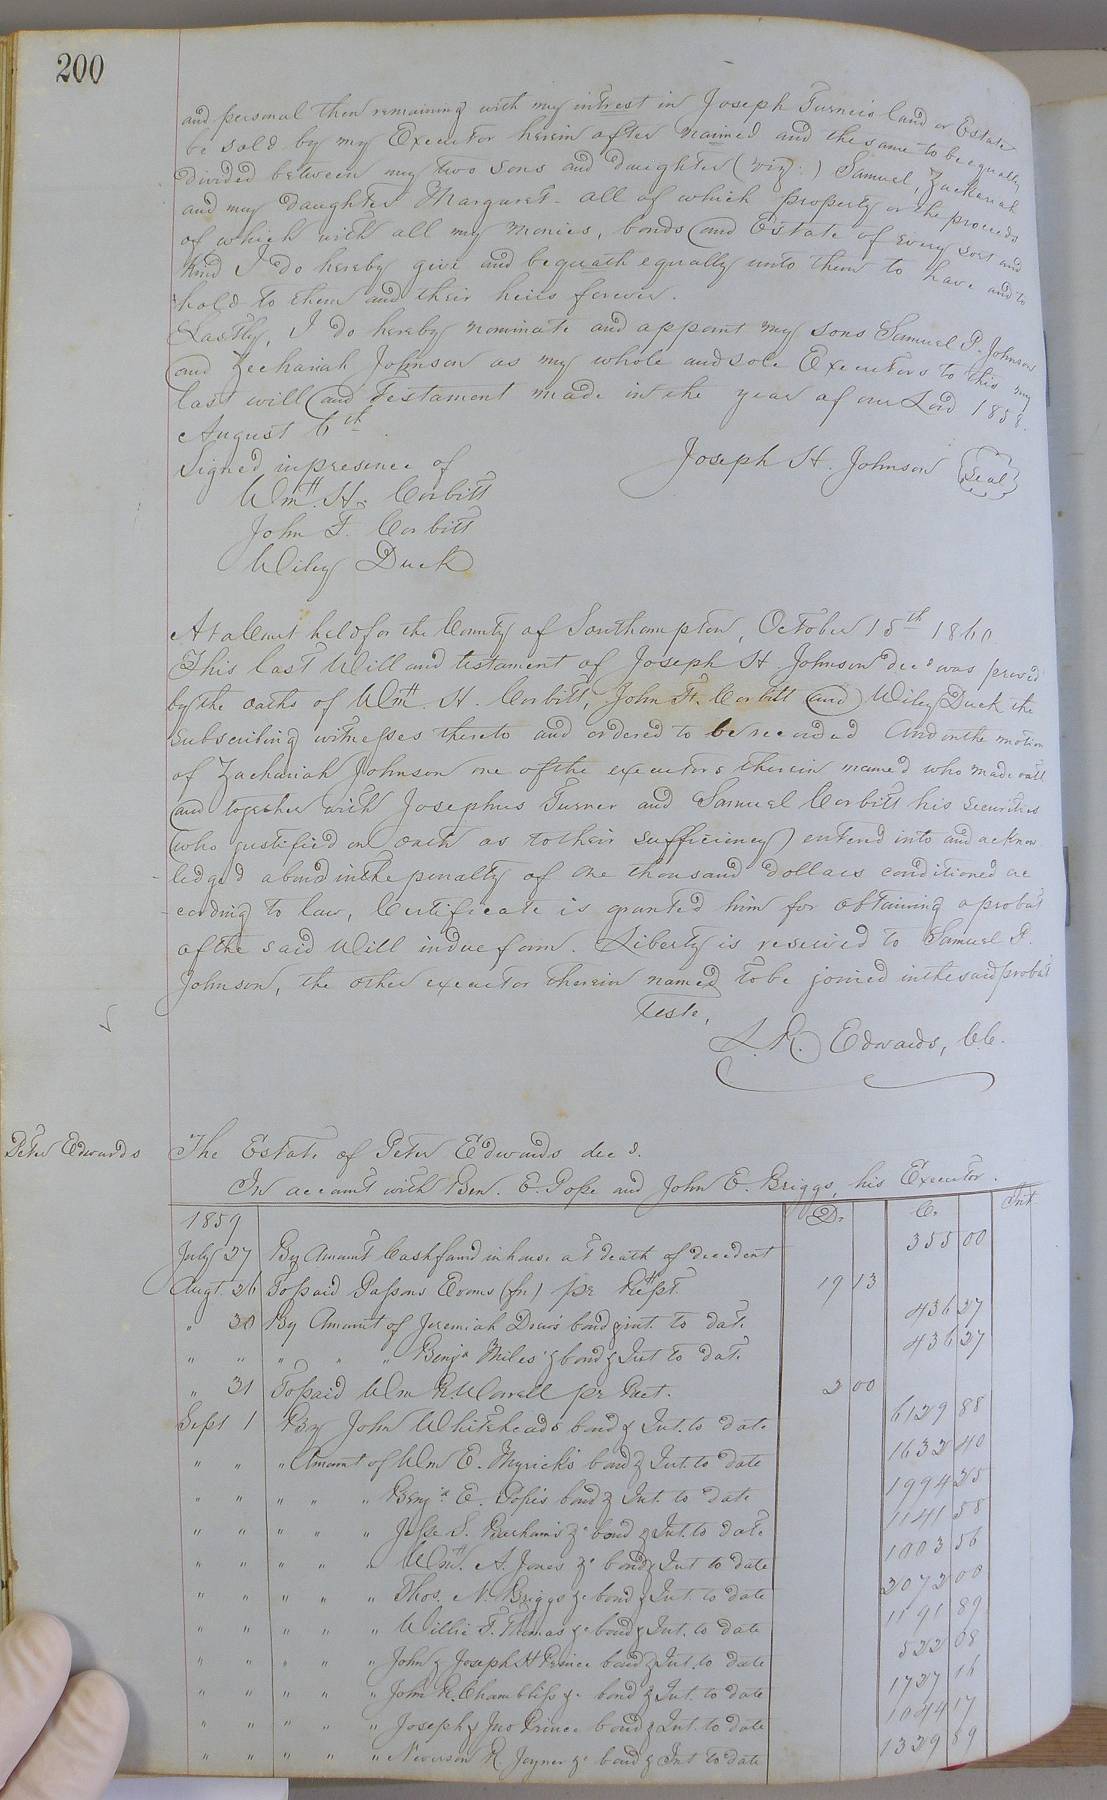 200
and personal then remaining with my intrest in Joseph Turners land or Estate
be sold by my Executor herein after named and the same to be equally
divided between my two sons and daughter (viz:) Samuel, Zachariah
and my daughter Margaret - all of which property or the proceeds
of which with all my monies, bonds and Estate of every sort and
kind I do hereby give and bequath equally unto them to have and to
hold to them and their heirs forever.
Lastly, I do hereby nominate and appoint my sons Samuel P. Johnson
and Zechariah Johnson as my whole and sole Executors to this my
last will and testament made in the year of our Lord 1858.
August 6th
Signed in presence of
Joseph H. Johnson Seal
Wm. H. Corbitt
John F. Corbitt
Wiley Duck
At a Court held for the County of Southampton, October 15th 1860
This last Will and testament of Joseph H. Johnson decd was proved
by the oaths of Wm. H. Corbitt, John F. Corbitt and Wiley Duck the
subscribing witnesses thereto and ordered to be recorded And on the motion
of Zachariah Johnson one of the executors therein named who made oath
and together with Josephus Turner and Samuel Corbitt his securities
(who justified on oath as to their sufficiency) entered into and acknow
ledged a bond in the penalty of one thousand dollars conditioned ac
cording to law, Certificate is granted him for obtaining a probat
of the said Will in due form. Liberty is reserved to Samuel P.
Johnson, the other executor therein named to be joined in the said probat
Teste,
L. R. Edwards, C.C.
Peter Edwards
The Estate of Peter Edwards decd.
In account with Ben. E. Pope and John E. Briggs, his Executor.
1859 Dr Cr Int
July 27 By Amount Cash found in house at death of decedent 355 00
Augt. 26 To paid Parsons Evans (fn) pr Rcpt. 19 13
" 30 By Amount of Jeremiah Drew's bond & int. to date 436 27
" " " " " Benja Miles' & bond & Int to date 436 27
" 31 To paid Wm R. Worrell pr Rect. 2 00
Sept 1 By John Whitehead's bond & Int. to date 6129 88
" " " Amount of Wm E. Myrick's bond & Int. to date 1632 40
" " " " " Benja E. Pope's bond & Int. to date 1994 25
" " " " " Jesse S. Barham's &c bond & Int. to date 1141 58
" " " " " Wm. A. Jones &c bond & Int to date 1003 56
" " " " " Thos. N. Briggs &c bond & Int to date 2072 00
" " " " " Willie F. Thomas &c bond & Int. to date 1191 89
" " " " " John & Joseph H Prince bond & Int. to date 522 08
" " " " " John R. Chambliss &c bond & Int. to date 1727 16
" " " " " Joseph & Jno Prince bond & Int. to date 1044 17
" " " " " Newsom R Joyner &c bond & Int to date 1339 89